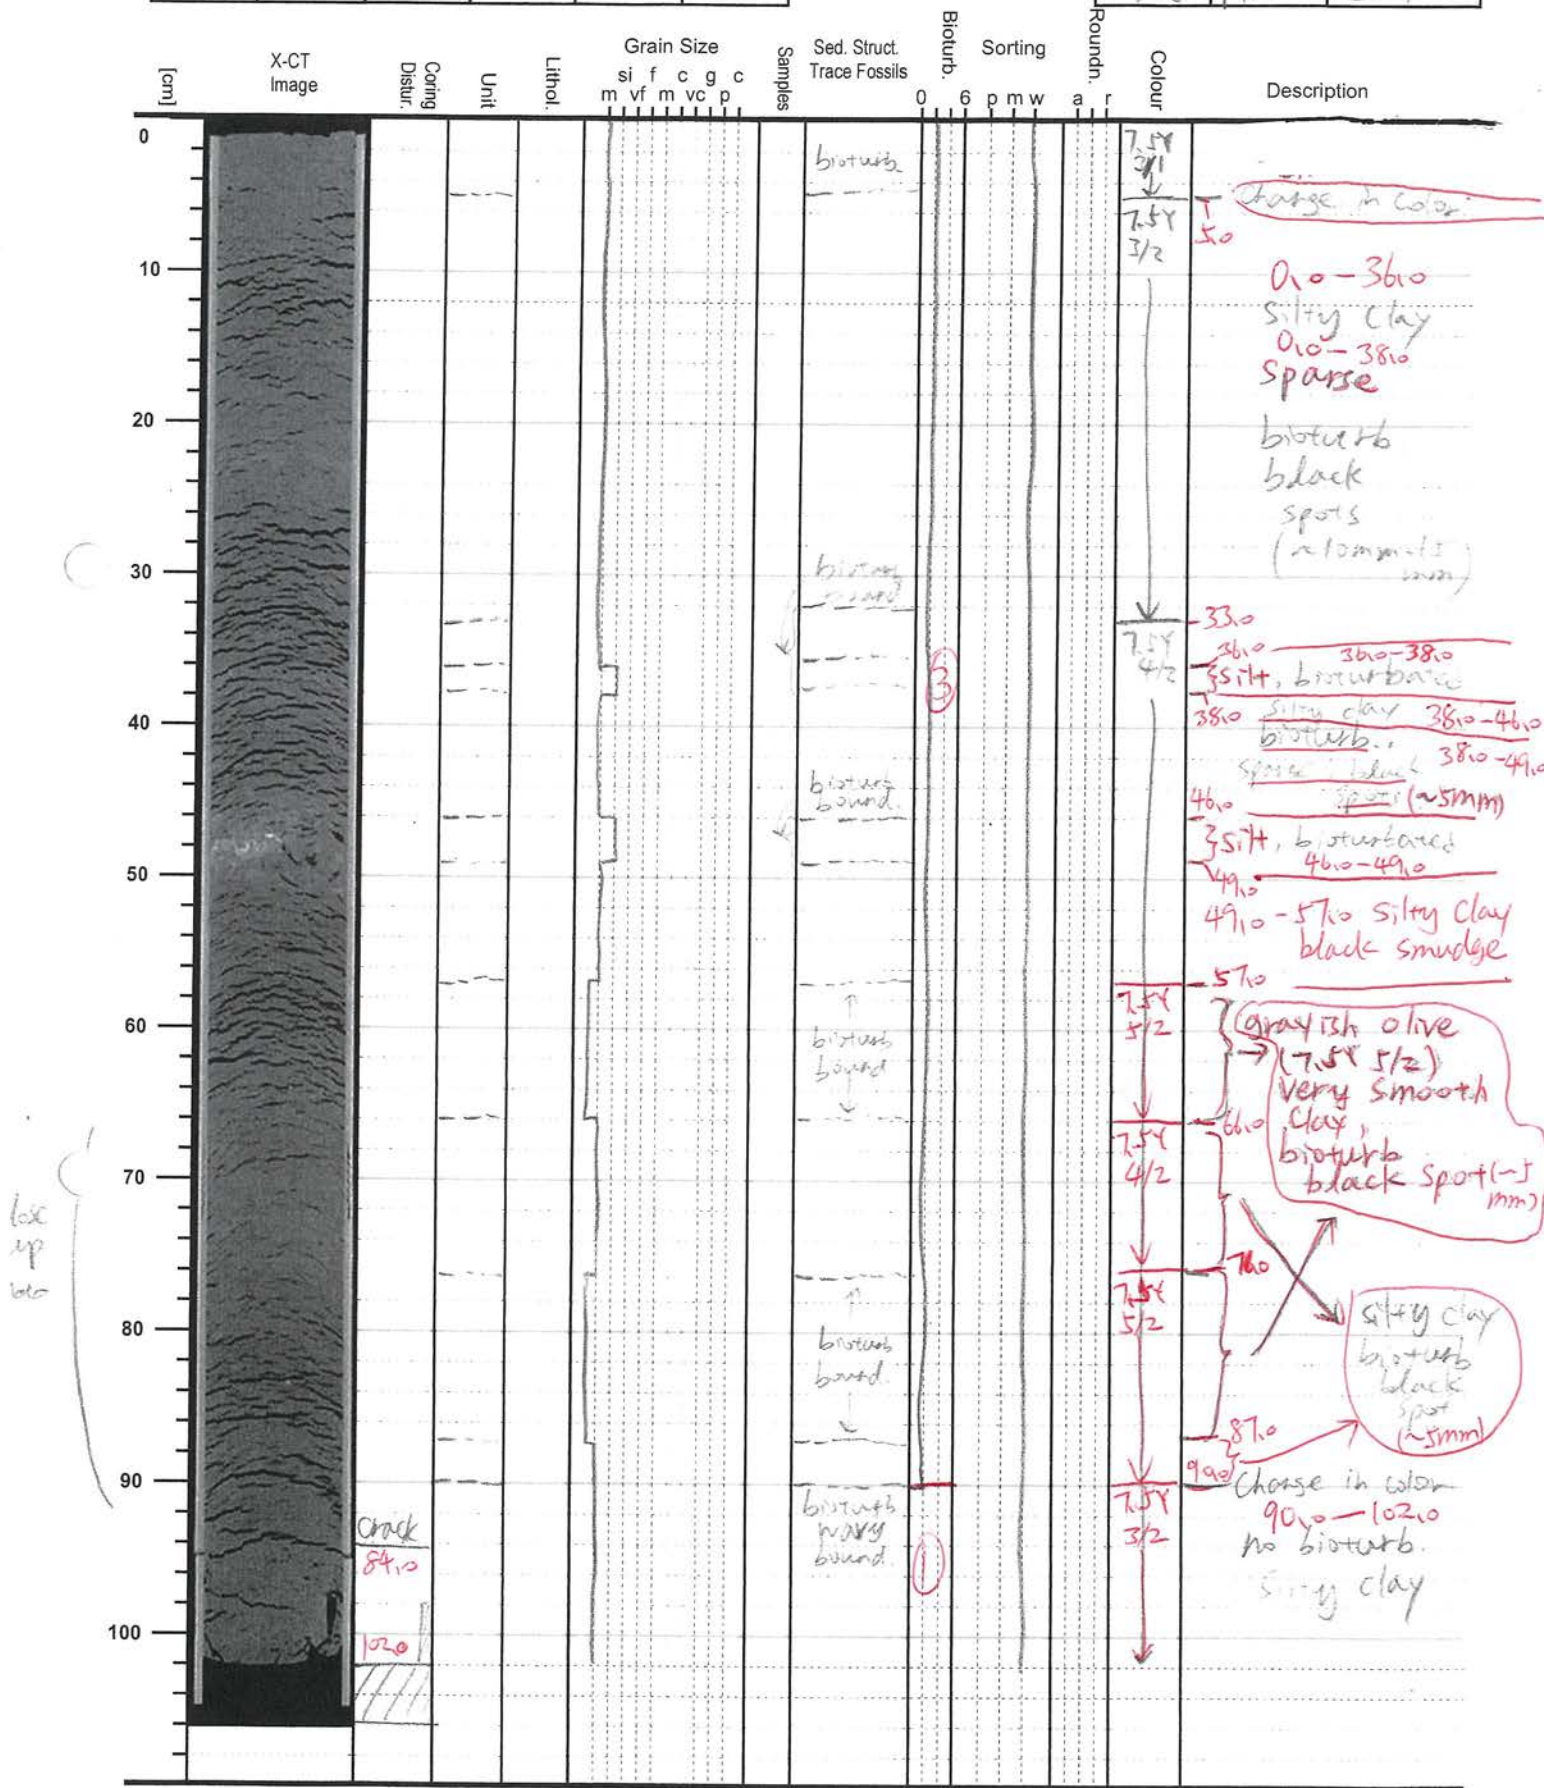 [cm]
X-CT
Image
Coring
Distur.
Unit
Lithol.
Grain Size
si f c g c
m vf m vc p
Samples
Sed. Struct.
Trace Fossils
Bioturb.
0 6
Sorting
p m w
Roundn.
a r
Colour
Description
0
10
20
30
40
50
60
70
80
90
100
Crack
84.0
102.0
bioturb
bioturb
bioturb
bound.
bioturb
bound
bioturb
bound.
bioturb
wavy
bound.
3
1
7.5Y
3/1
7.5Y
3/2
7.5Y
4/2
7.5Y
5/2
7.5Y
4/2
7.5Y
5/2
7.5Y
3/2
Change in color
5.0
0.0-36.0
Silty clay
0.0-38.0
Sparse
bioturb
black
spots
33.0
36.0
36.0-38.0
}Silt, bioturbated
38.0
silty clay 38.0-46.0
bioturb. 38.0-49.0
sparse black
spots (~5mm)
46.0
}Silt, bioturbated
46.0-49.0
49.0
49.0-57.0 Silty Clay
black smudge
57.0
grayish olive
(7.5Y 5/2)
Very Smooth
Clay,
bioturb
black Spot (~5
mm)
66.0
76.0
silty clay
bioturb
black
spot
(~5mm)
87.0
90.0
Change in color
90.0-102.0
no bioturb.
silty clay
up